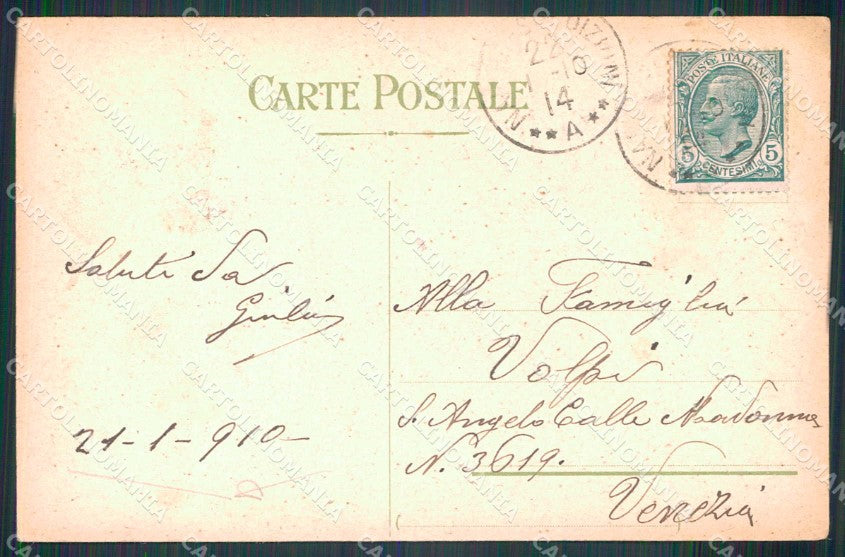 CARTE POSTALE
POSTE ITALIANE
5 CENTESIMI 5
14
N ** A **
Saluti Da
Giulia
21-1-910-
Alla Famiglia
Volpi
S. Angelo Calle Madonna
N. 3619.
Venezia
CARTOLINOMANIA